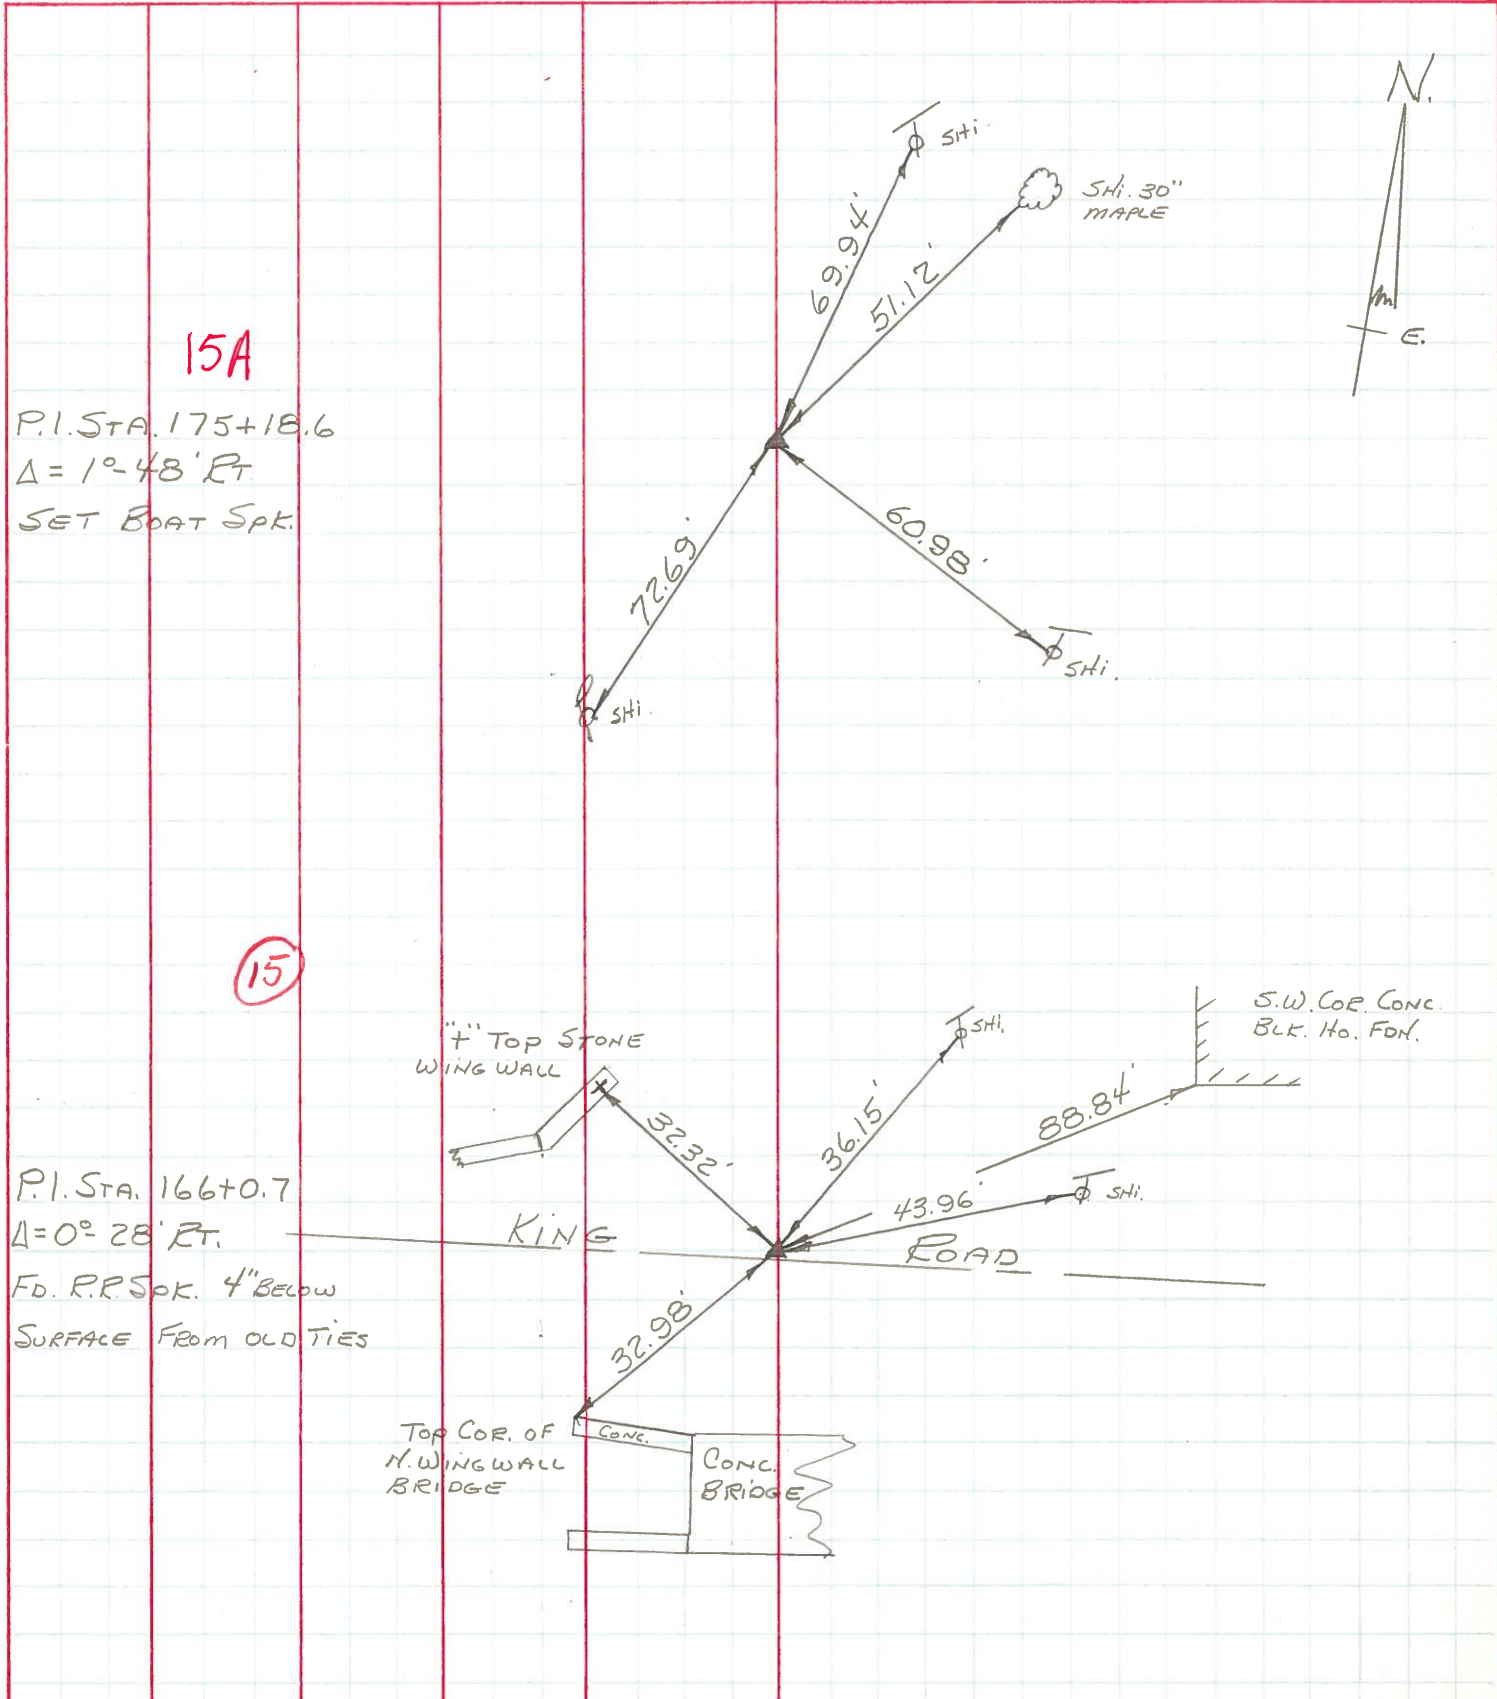 N.
E.
SHi.
SHi. 30"
MAPLE
69.94'
51.12'
15A
P.I. STA. 175+18.6
Δ = 1°-48' RT
SET BOAT SPK.
72.69'
60.98'
SHi.
SHi.
15
"+" TOP STONE
WING WALL
SHi.
S.W. COR. CONC.
BLK. HO. FDN.
32.32'
36.15'
88.84'
P.I. STA. 166+0.7
Δ = 0°-28' RT.
FD. R.R. SPK. 4" BELOW
SURFACE FROM OLD TIES
43.96'
SHi.
KING ROAD
32.98'
TOP COR. OF
N. WINGWALL
BRIDGE
CONC.
CONC.
BRIDGE